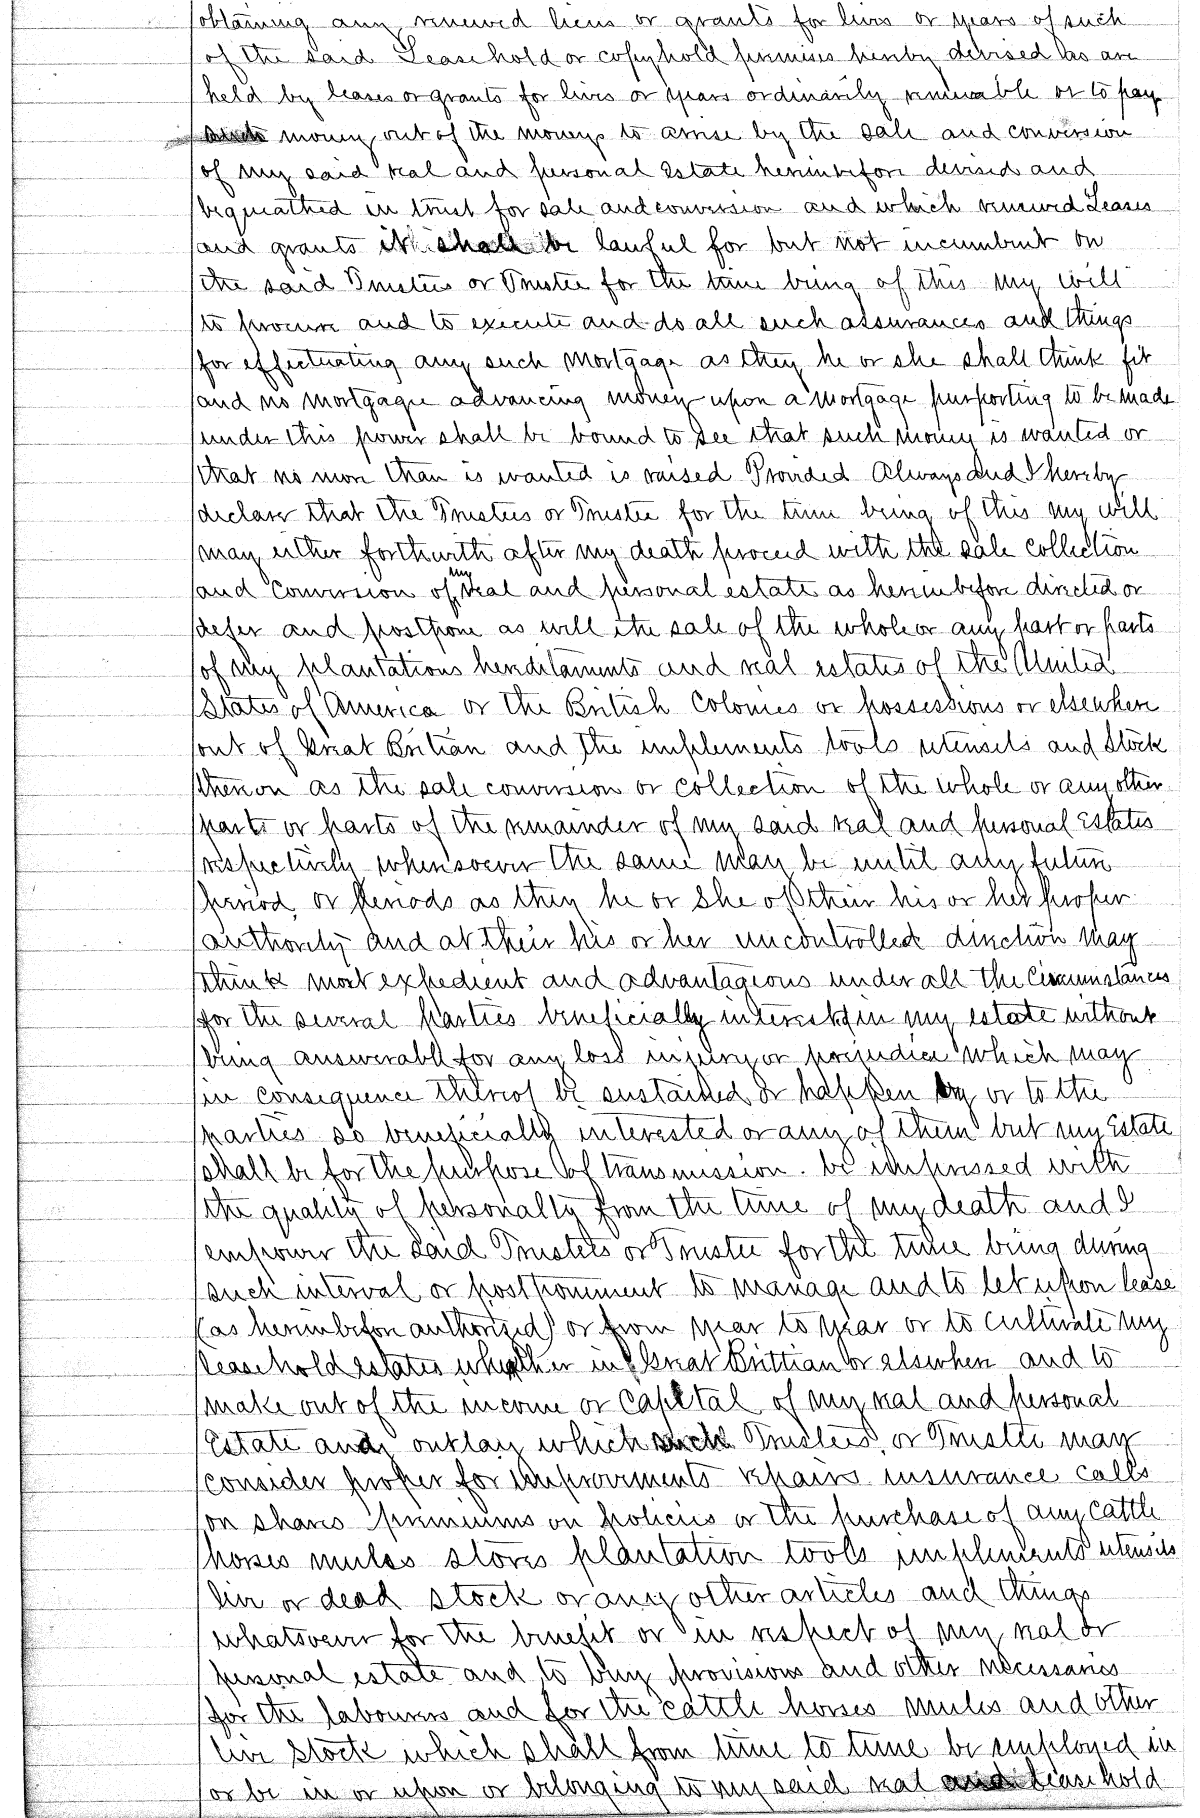 obtaining any renewed liens or grants for lives or years of such
of the said Leasehold or copyhold premises hereby devised as are
held by leases or grants for lives or years ordinarily renewable or to pay
money out of the moneys to arise by the sale and conversion
of my said real and personal Estate hereinbefore devised and
bequeathed in trust for sale and conversion and which renewed Leases
and grants it shall be lawful for but not incumbent on
the said Trustees or Trustee for the time being of this my will
to procure and to execute and do all such assurances and things
for effectuating any such Mortgage as they he or she shall think fit
and no mortgagee advancing money upon a Mortgage purporting to be made
under this power shall be bound to see that such money is wanted or
that no more than is wanted is raised Provided Always and I hereby
declare that the Trustees or Trustee for the time being of this my will
may either forthwith after my death proceed with the sale collection
and conversion of my real and personal estate as herein before directed or
defer and postpone as well the sale of the whole or any part or parts
of my plantations hereditaments and real estates of the United
States of America or the British Colonies or possessions or elsewhere
out of Great Britian and the implements tools utensils and Stock
thereon as the sale conversion or collection of the whole or any other
parts or parts of the remainder of my said real and personal Estates
respectively whensoever the same may be until any future
period or periods as they he or she of their his or her proper
authority and at their his or her uncontrolled direction may
think most expedient and advantageous under all the Circumstances
for the several parties beneficially interested in my estate without
being answerable for any loss injury or prejudice which may
in consequence thereof be sustained or happen by or to the
parties so beneficially interested or any of them but my Estate
shall be for the purpose of transmission be impressed with
the quality of personalty from the time of my death and I
empower the said Trustees or Trustee for the time being during
such interval or postponment to manage and to let upon lease
(as hereinbefore authorized) or from year to year or to cultivate my
leasehold estates whether in Great Brittian or elswhere and to
make out of the income or Capital of my real and personal
Estate any outlay which such Trustees or Trustee may
consider proper for improvements repairs insurance calls
on shares premiums on policies or the purchase of any Cattle
horses mules stores plantation tools implements utensils
live or dead stock or any other articles and things
whatsoever for the benefit or in respect of my real or
personal estate and to buy provisions and other necessaries
for the labourers and for the cattle horses mules and other
live Stock which shall from time to time be employed in
or be in or upon or belonging to my said real and leasehold